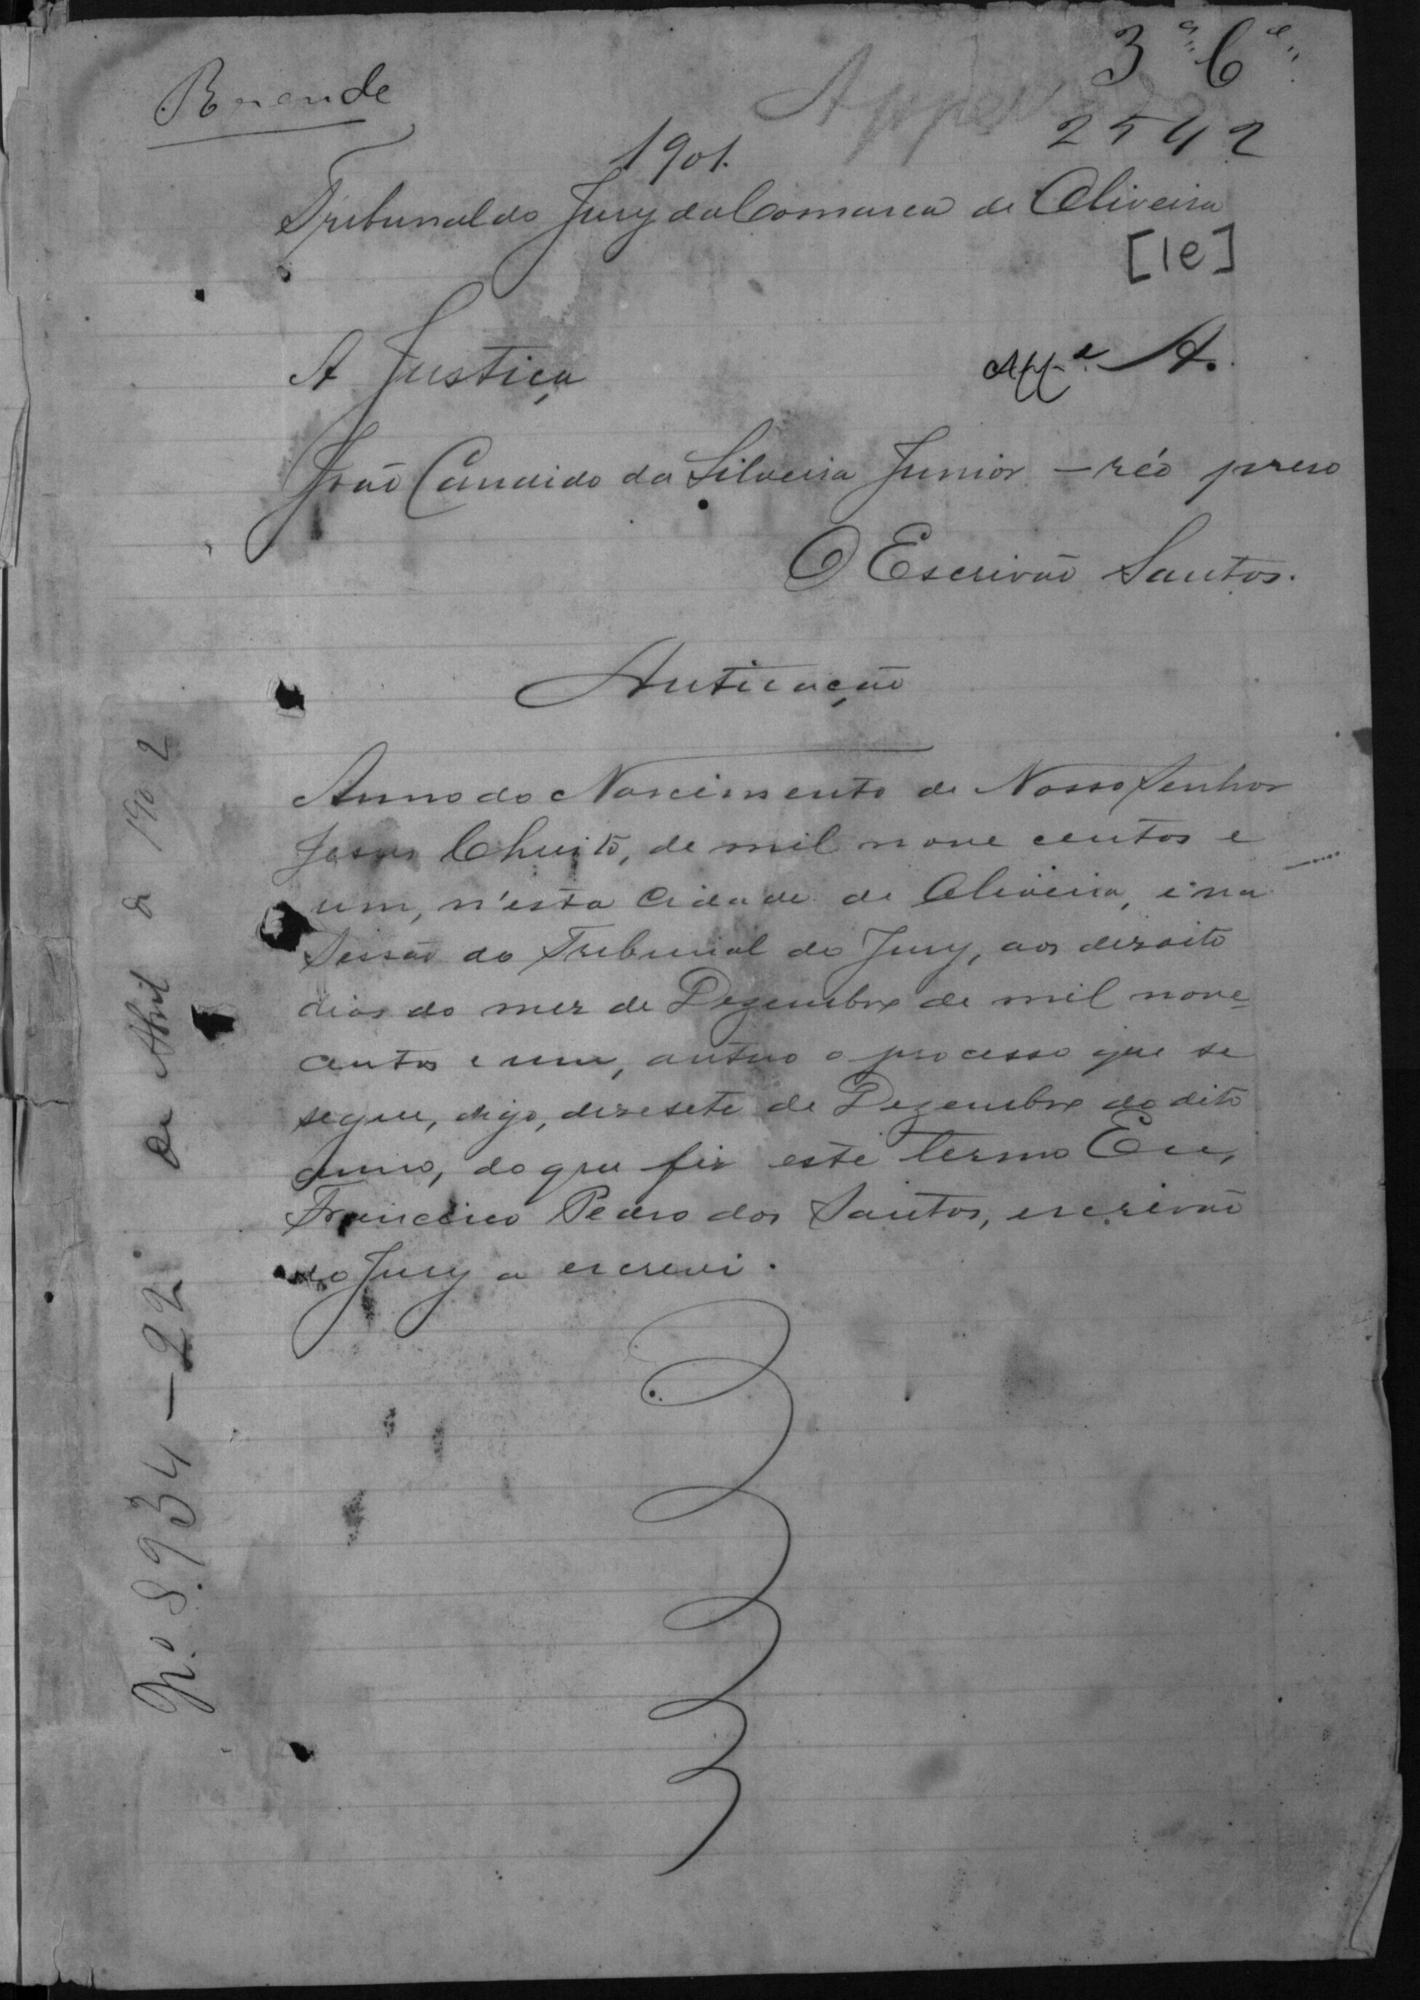 Rezende
3ª C.el
Appel
2542
1901.
Tribunal do Jury da Comarca de Oliveira
[1e]
A Justiça App.e A.
João Candido da Silveira Junior - réo preso
O Escrivão Santos.
Autuação
Anno do Nascimento de Nosso Senhor
Jesus Christo, de mil nove centos e
um, n'esta Cidade de Oliveira, e na
Sessão do Tribunal do Jury, aos dezoito
dias do mez de Dezembro de mil nove-
centos e um, autuo o processo que se
segue, digo, dezesete de Dezembro do dito
anno, do que fiz este termo Eu,
Francisco Pedro dos Santos, escrivão
do Jury a escrevi.
Nº 8.934 - 22 de Abril de 1902